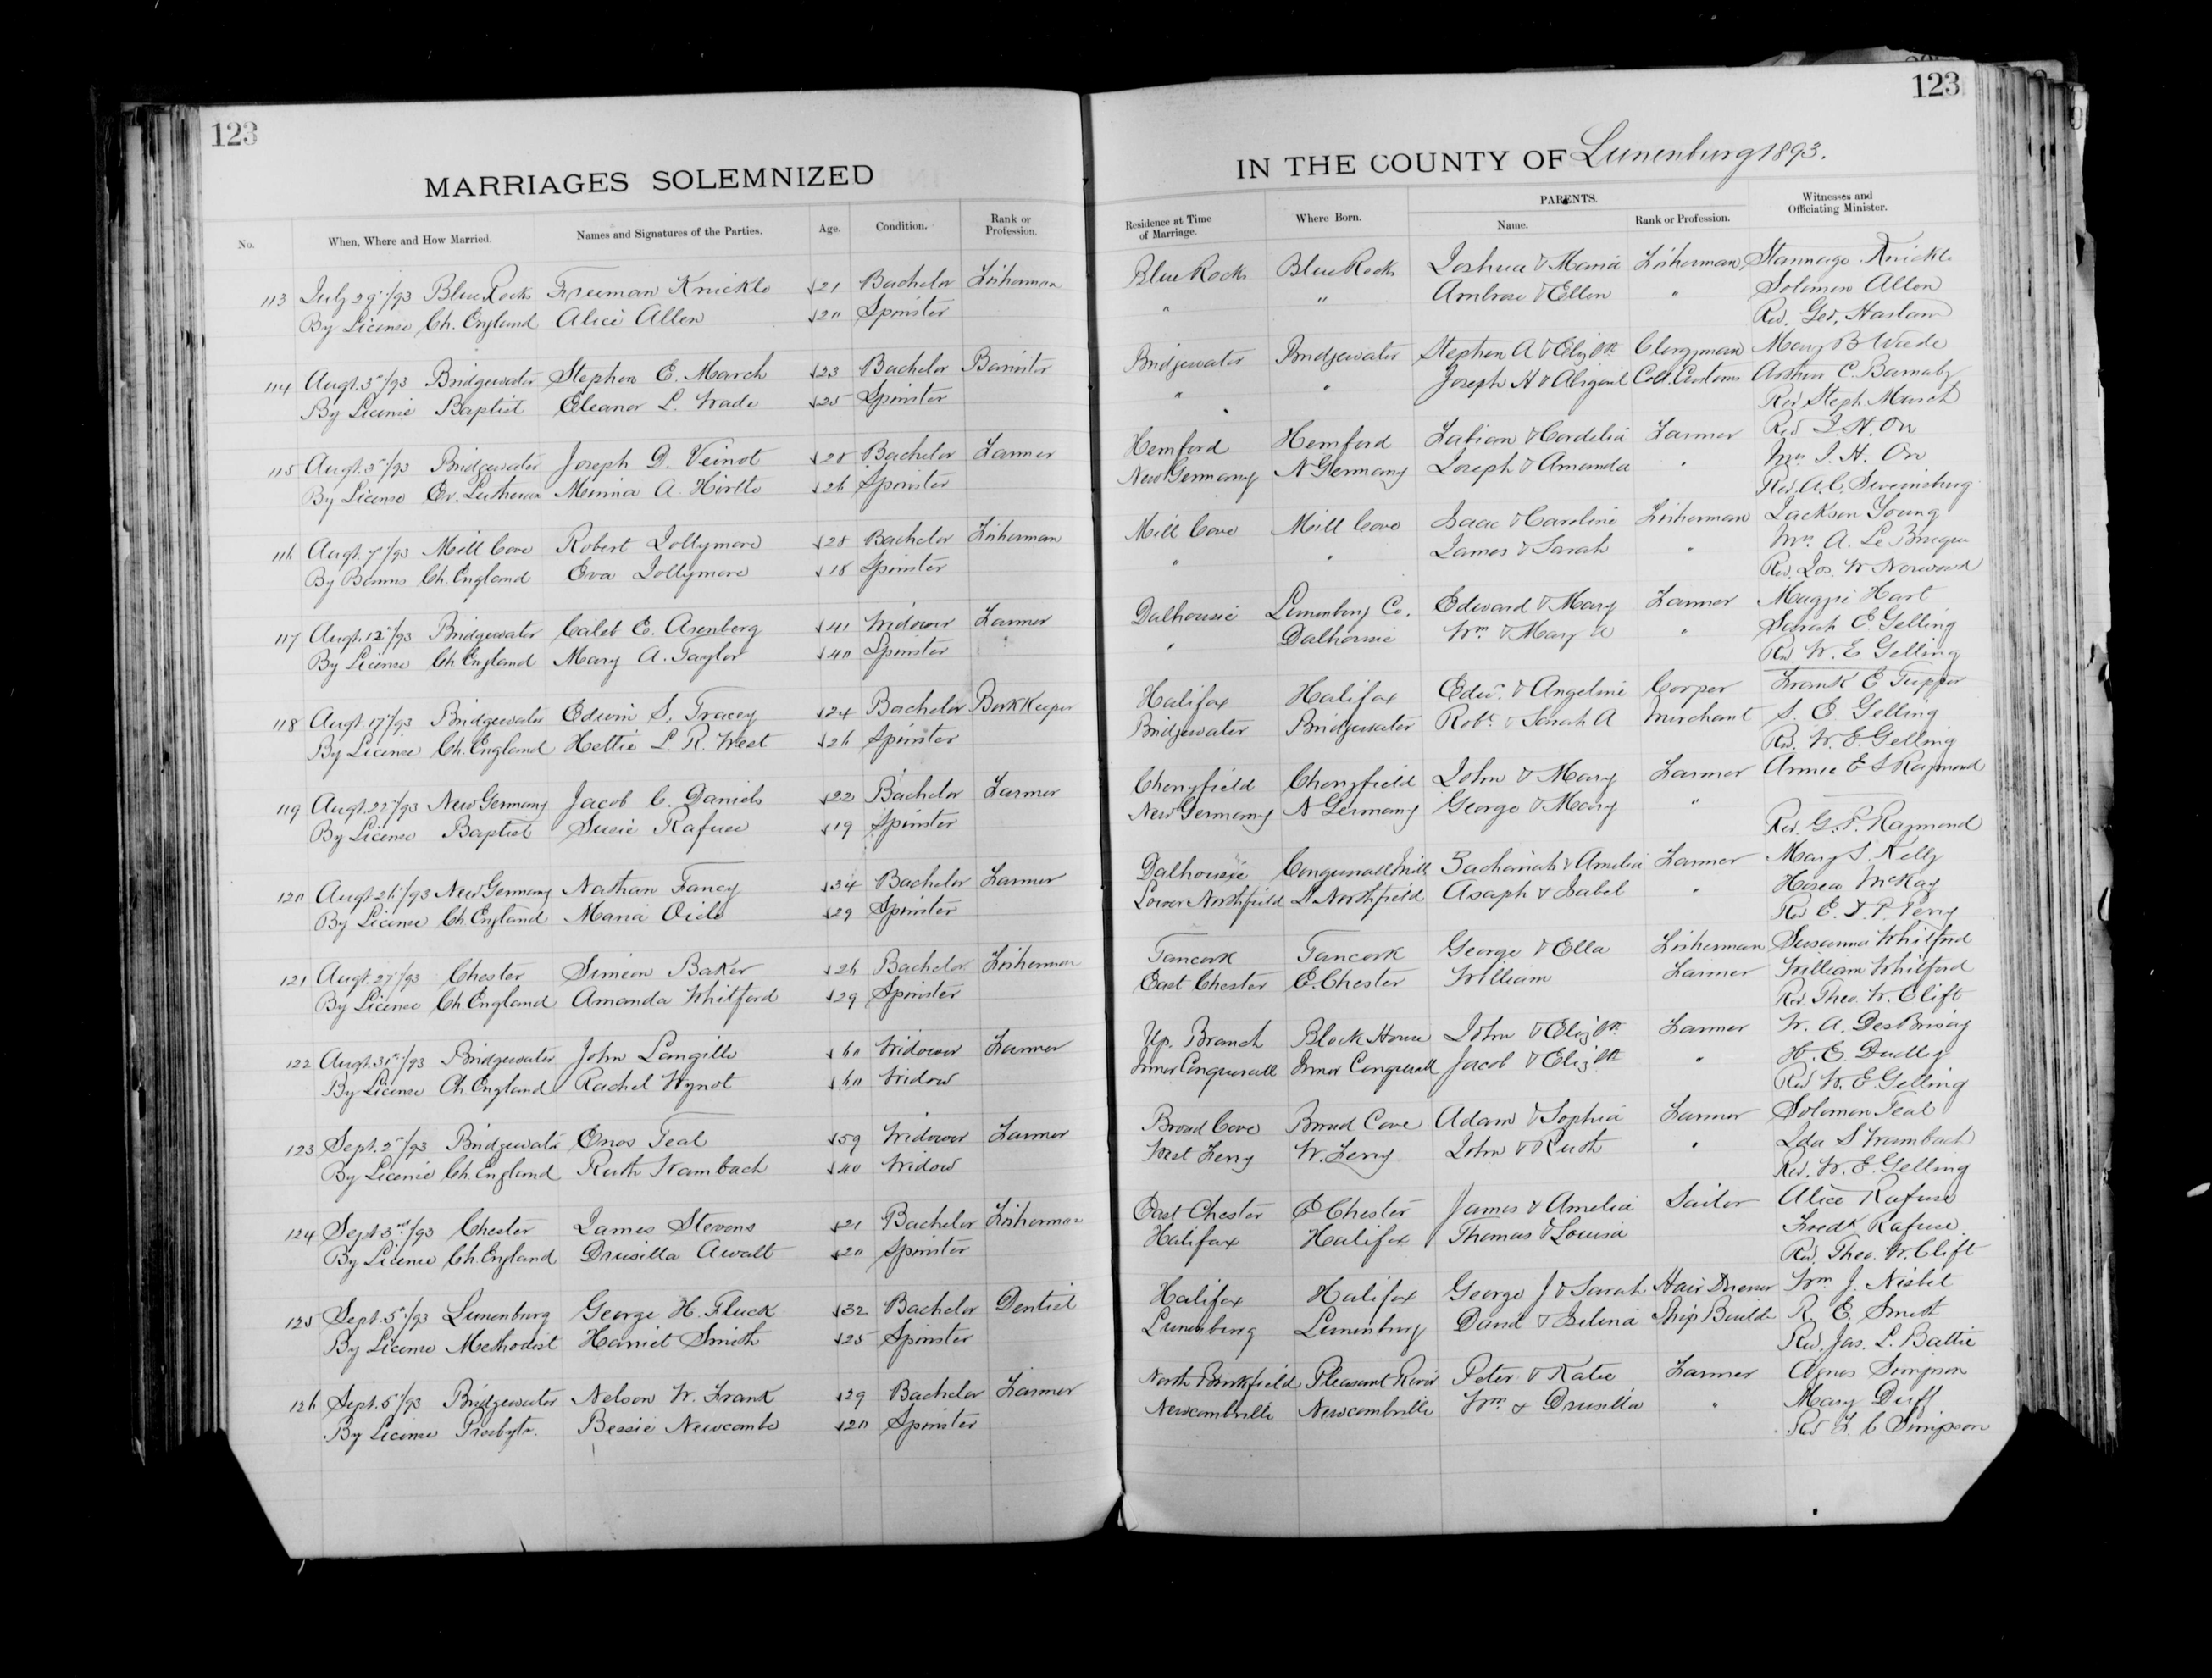 123
123
MARRIAGES SOLEMNIZED
IN THE COUNTY OF Lunenburg 1893.
No. When, Where and How Married. Names and Signatures of the Parties. Age. Condition. Rank or Profession. Residence at Time of Marriage. Where Born. PARENTS. Name. Rank or Profession. Witnesses and Officiating Minister.
113 July 29/93 Blue Rocks Freeman Knickle 21 Bachelor Fisherman Blue Rocks Blue Rocks Joshua & Maria Fisherman Stannage Knickle
By License Ch. England Alice Allen 20 Spinster " " Ambrose & Ellen " Solomon Allen
Rev. Geo. Haslam
114 Augt. 3/93 Bridgewater Stephen E. March 23 Bachelor Barrister Bridgewater Bridgewater Stephen A & Elizbth Clergyman Mary B Wade
By License Baptist Eleanor L. Wade 25 Spinster " " Joseph H & Abigail Coll. Customs Arthur C. Barnaby
Rev Steph March
115 Augt. 3/93 Bridgewater Joseph D. Veinot 20 Bachelor Farmer Hemford Hemford Fabian & Cordelia Farmer Rev J. H. Orr
By License Ev. Lutheran Minnia A. Hirtle 26 Spinster New Germany N Germany Joseph & Amanda " Mrs J. H. Orr
Rev. A. C. Sweinsburg
116 Augt. 7/93 Mill Cove Robert Jollymore 28 Bachelor Fisherman Mill Cove Mill Cove Isaac & Caroline Fisherman Jackson Young
By Banns Ch. England Eva Jollymore 18 Spinster " " James & Sarah " Mrs. A. Le
Rev. Jos. W Norwood
117 Augt. 12/93 Bridgewater Caleb E. Arenberg 41 Widower Farmer Dalhousie Lunenburg Co. Edward & Mary Farmer Maggie Hart
By License Ch England Mary A. Taylor 40 Spinster " " Dalhousie Wm & Mary A " Sarah E. Gelling
Rev. W. E Gelling
118 Augt 17/93 Bridgewater Edwin S. Tracey 24 Bachelor BookKeeper Halifax Halifax Edwd. & Angeline Cooper Frank E Tupper
By License Ch. England Hettie L. R. West 26 Spinster Bridgewater Bridgewater Robt. & Sarah A Merchant S. E. Gelling
Rev. W. E. Gelling
119 Augt. 22/93 New Germany Jacob C. Daniels 22 Bachelor Farmer Cherryfield Cherryfield John & Mary Farmer Annie E S Raymond
By License Baptist Susie Rafuse 19 Spinster New Germany N Germany George & Mary "
Rev. G. P. Raymond
120 Augt 26/93 New Germany Nathan Fancy 34 Bachelor Farmer Dalhousie Conquerall Mills Zachariah & Amelia Farmer Mary S. Kelly
By License Ch. England Maria Oicle 29 Spinster Lower Northfield L Northfield Asaph & Isabel " Hosea McKay
Rev E. D. P. Parry
121 Augt. 27/93 Chester Simeon Baker 26 Bachelor Fisherman Tancook Tancook George & Ella Fisherman Susanna Whitford
By License Ch. England Amanda Whitford 29 Spinster East Chester E. Chester William Farmer William Whitford
Rev. Theo. W. Clift
122 Augt. 31st/93 Bridgewater John Langille 60 Widower Farmer Up. Branch Block House John & Elizbth. Farmer W. A. DesBrisay
By License Ch. England Rachel Wynot 60 Widow Inner Conquerall Inner Conquerall Jacob & Elizbth " H. E. Dudley
Rev W. E. Gelling
123 Sept. 2/93 Bridgewater Enos Teal 59 Widower Farmer Broad Cove Broad Cove Adam & Sophia Farmer Solomon Teal
By License Ch. England Ruth Wambach 40 Widow West Ferry W. Ferry John & Ruth " Ida S Wambach
Rev. W. E. Gelling
124 Sept. 3rd/93 Chester James Stevens 21 Bachelor Fisherman East Chester E Chester James & Amelia Sailor Alice Rafuse
By License Ch. England Drusilla Awalt 20 Spinster Halifax Halifax Thomas & Louisa Fredk. Rafuse
Rev. Theo. W. Clift
125 Sept. 5th/93 Lunenburg George H. Fluck 32 Bachelor Dentist Halifax Halifax George J & Sarah Hair Dresser Wm J. Nisbet
By License Methodist Harriet Smith 25 Spinster Lunenburg Lunenburg David & Selina Ship Builder R E. Smith
Rev. Jas. L. Battie
126 Sept. 5/93 Bridgewater Nelson W. Frank 29 Bachelor Farmer North Brookfield Pleasant River Peter & Katie Farmer Agnes Simpson
By License Presbytn. Bessie Newcombe 20 Spinster Newcombville Newcombville Wm & Drusilla " Mary Duff
Rev F. C Simpson